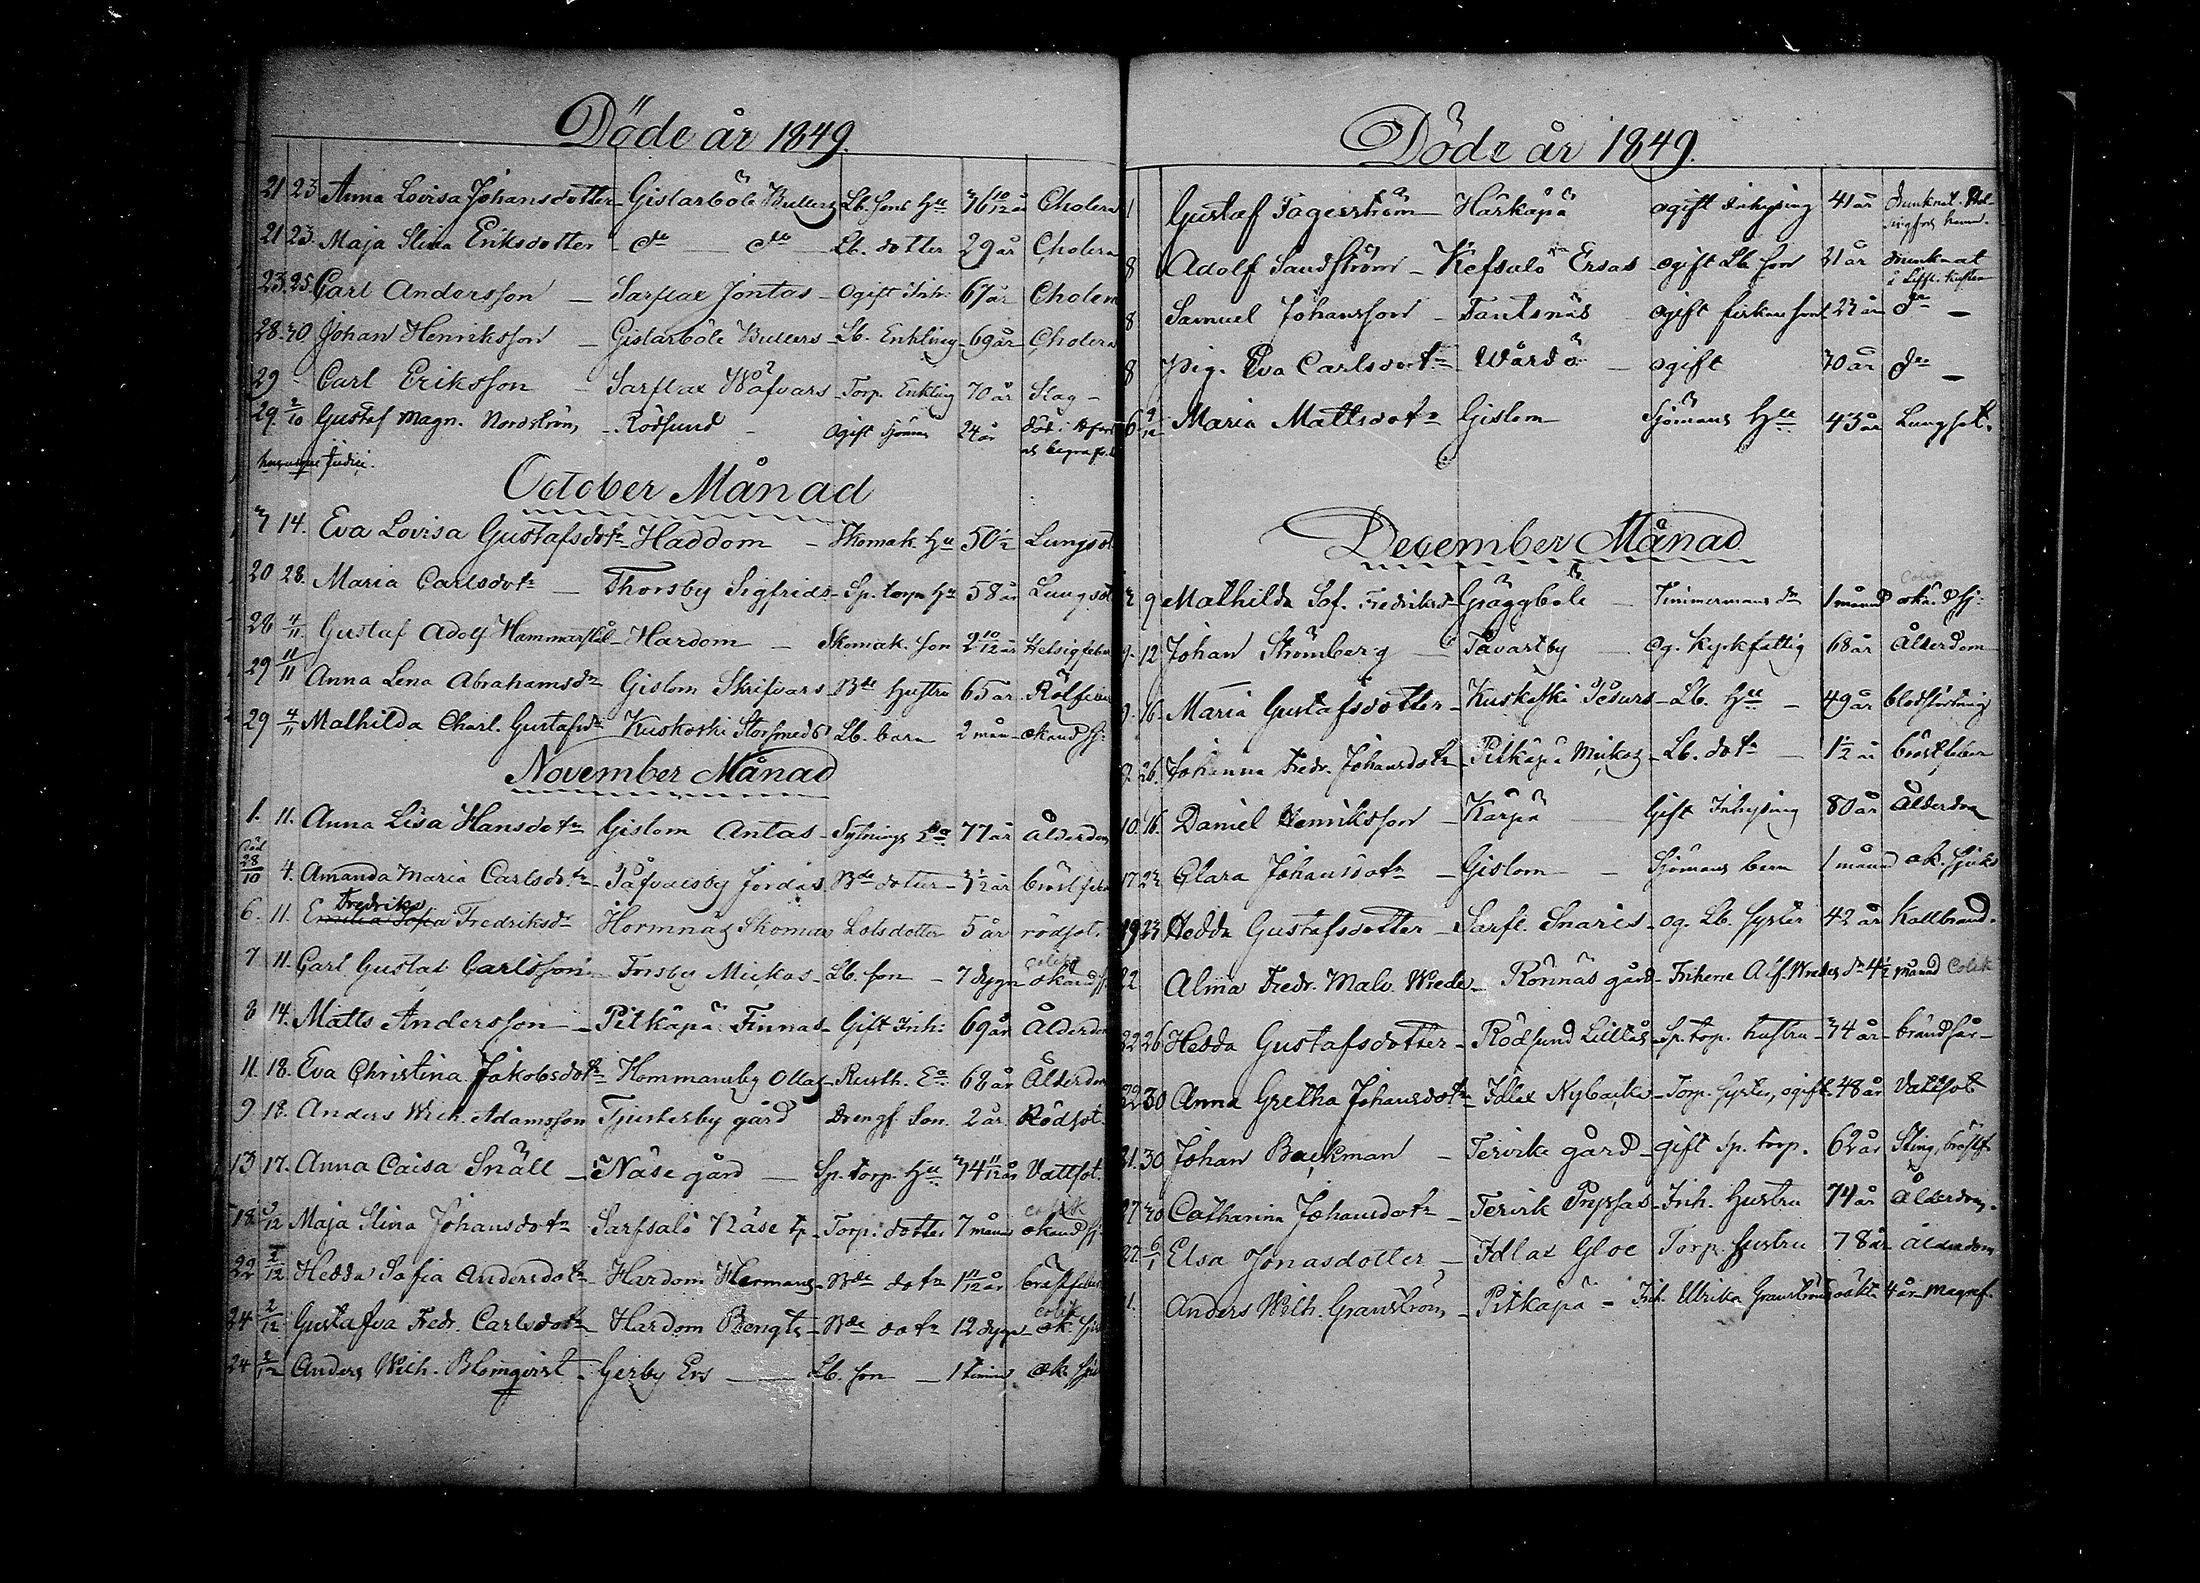 Döde år 1849.
21 23 Anna Lovisa Johansdotter Gislarböle Bullers Lb. sons Hu 36 10/12 år Cholera
21 23. Maja Stina Eriksdotter do do Lb. dotter 29 år Cholera
23. 25. Carl Andersson Sarflax Jontas Ogift Inh: 67 år Cholera
28. 30 Johan Henriksson Gislarböle Bullers Lb. Enkling 69 år Cholera
29 Carl Eriksson Sarflax Wåfvars Torp. Enkling 70 år Slag
29. 2/10 Gustaf Magn. Nordström Rödsund Ogift Sjöman 24 år död i
October Månad
7 14. Eva Lovisa Gustafsdotr Haddom Skomak. Hu 50 1/2 Lungsot
20 28. Maria Carlsdotr Thorsby Sigfrids Sp. torp. Hu 58 år Lungsot
28 4/11 Gustaf Adolf Hammarstål Hardom Skomak. son 2 10/12 år
29 11/11 Anna Lena Abrahamsdr Gislom Skrifvars Bde Hustru 65 år Rötfeber
29 4/11 Mathilda Charl. Gustafsdr Kuskoski Storsmeds Lb. barn 2 mån okänd sj:
November Månad
1. 11. Anna Lisa Hansdotr Gislom Antas Sytnings Ea 77 år Ålderdom
död
28/10 4. Amanda Maria Carlsdotr Påfvalsby Jordas Bde dotter 3 1/2 år bröstfeber
Fredrika
6. 11. Emilia Sofia Fredriksdr Hormnäs Skomars Lotsdotter 5 år rödsot.
colik
7 11. Carl Gustaf Carlsson Forsby Mickos Lb. son 7 dygn okänd sj.
8 14. Matts Andersson Pitkäpä Finnas Gift Inh: 69 år Ålderdom
11. 18. Eva Christina Jakobsdotr Hommansby Ollas Rusth. Ea 68 år Ålderdom
9. 18. Anders Wilh. Adamsson Tjusterby gård Drengs Son. 2 år Rödsot.
13 17. Anna Caisa Snäll Näse gård Sp. torp. Hu 34 11/12 år Vattsot.
colik
18. 3/12 Maja Stina Johansdotr Sarfsalö Näse tp Torp. dotter 7 månad okänd sj:
22 2/12 Hedda Sofia Andersdotr Hardom Hermans Bde dotr 1 11/12 år bröstfeber
colik
24 2/12 Gustafva Fredr. Carlsdotr Hardom Bengts Bde dotr 12 dygn ok. sju
24 2/12 Anders Wilh. Blomqvist Gerby Ers Lb. son 1 timme ok. sju
Döde år 1849.
1 Gustaf Fagerström Härkäpä ogift Inhysing 41 år drunknat. Hel-
singfors hamn.
8 Adolf Sandström Kefsalö Ersas ogift Lb. son 21 år drunknat
8 Samuel Johansson Fantsnäs ogift fiskare son 23 år do
8 Pig. Eva Carlsdotr Wårdö ogift 30 år do
6 9/12 Maria Mattsdotr Gislom Sjömans Hu 43 år Lungsot.
December Månad
colik
3 9 Mathilda Sof. Fredriksdr Gräggböle Timmermans dr 1 månad okänd sj:
9. 12 Johan Strömberg Tavastby Og. kyrkfattig 68 år Ålderdom
9. 16. Maria Gustafsdotter Kuskoski Pesurs Lb. Hu 49 år blodstörtning
9. 26. Johanna Fredr. Johansdotr Pitkäpä Mickos Lb. dotr 1 1/2 år bröstfeber
10. 16. Daniel Henriksson Kärpä Gift Inhysing 80 år Ålderdom
17. 23. Clara Johansdotr Gislom Sjömans barn 1 månad ok. sjukd
19 23 Hedda Gustafsdotter Sarfl. Snaris og. Lb. syster 42 år kallbrand.
22 Alma Fredr. Malv. Wrede Rönnäs gård Friherre Alf. Wredes dr 4 1/2 månad Colik
22 26 Hedda Gustafsdotter Rödsund Lilltås Sp. torp. hustru 34 år brandsår
22 30 Anna Gretha Johansdotr Idlax Nybacka Torp. syster, ogift. 48 år Vattsot
21. 30 Johan Backman Tervik gård gift Sp. torp. 62 år Sting, bröstf.
27 30 Catharina Johansdotr Tervik Pryssas Inh. Hustru 74 år Ålderdom.
27. 6/1 Elsa Jonasdotter Idlax Gloe Torp. hustru 78 år Ålderdom
1. Anders Wilh. Granström Pitkäpä Inh. Ulrika Granströms oäkta 4 år Magref.